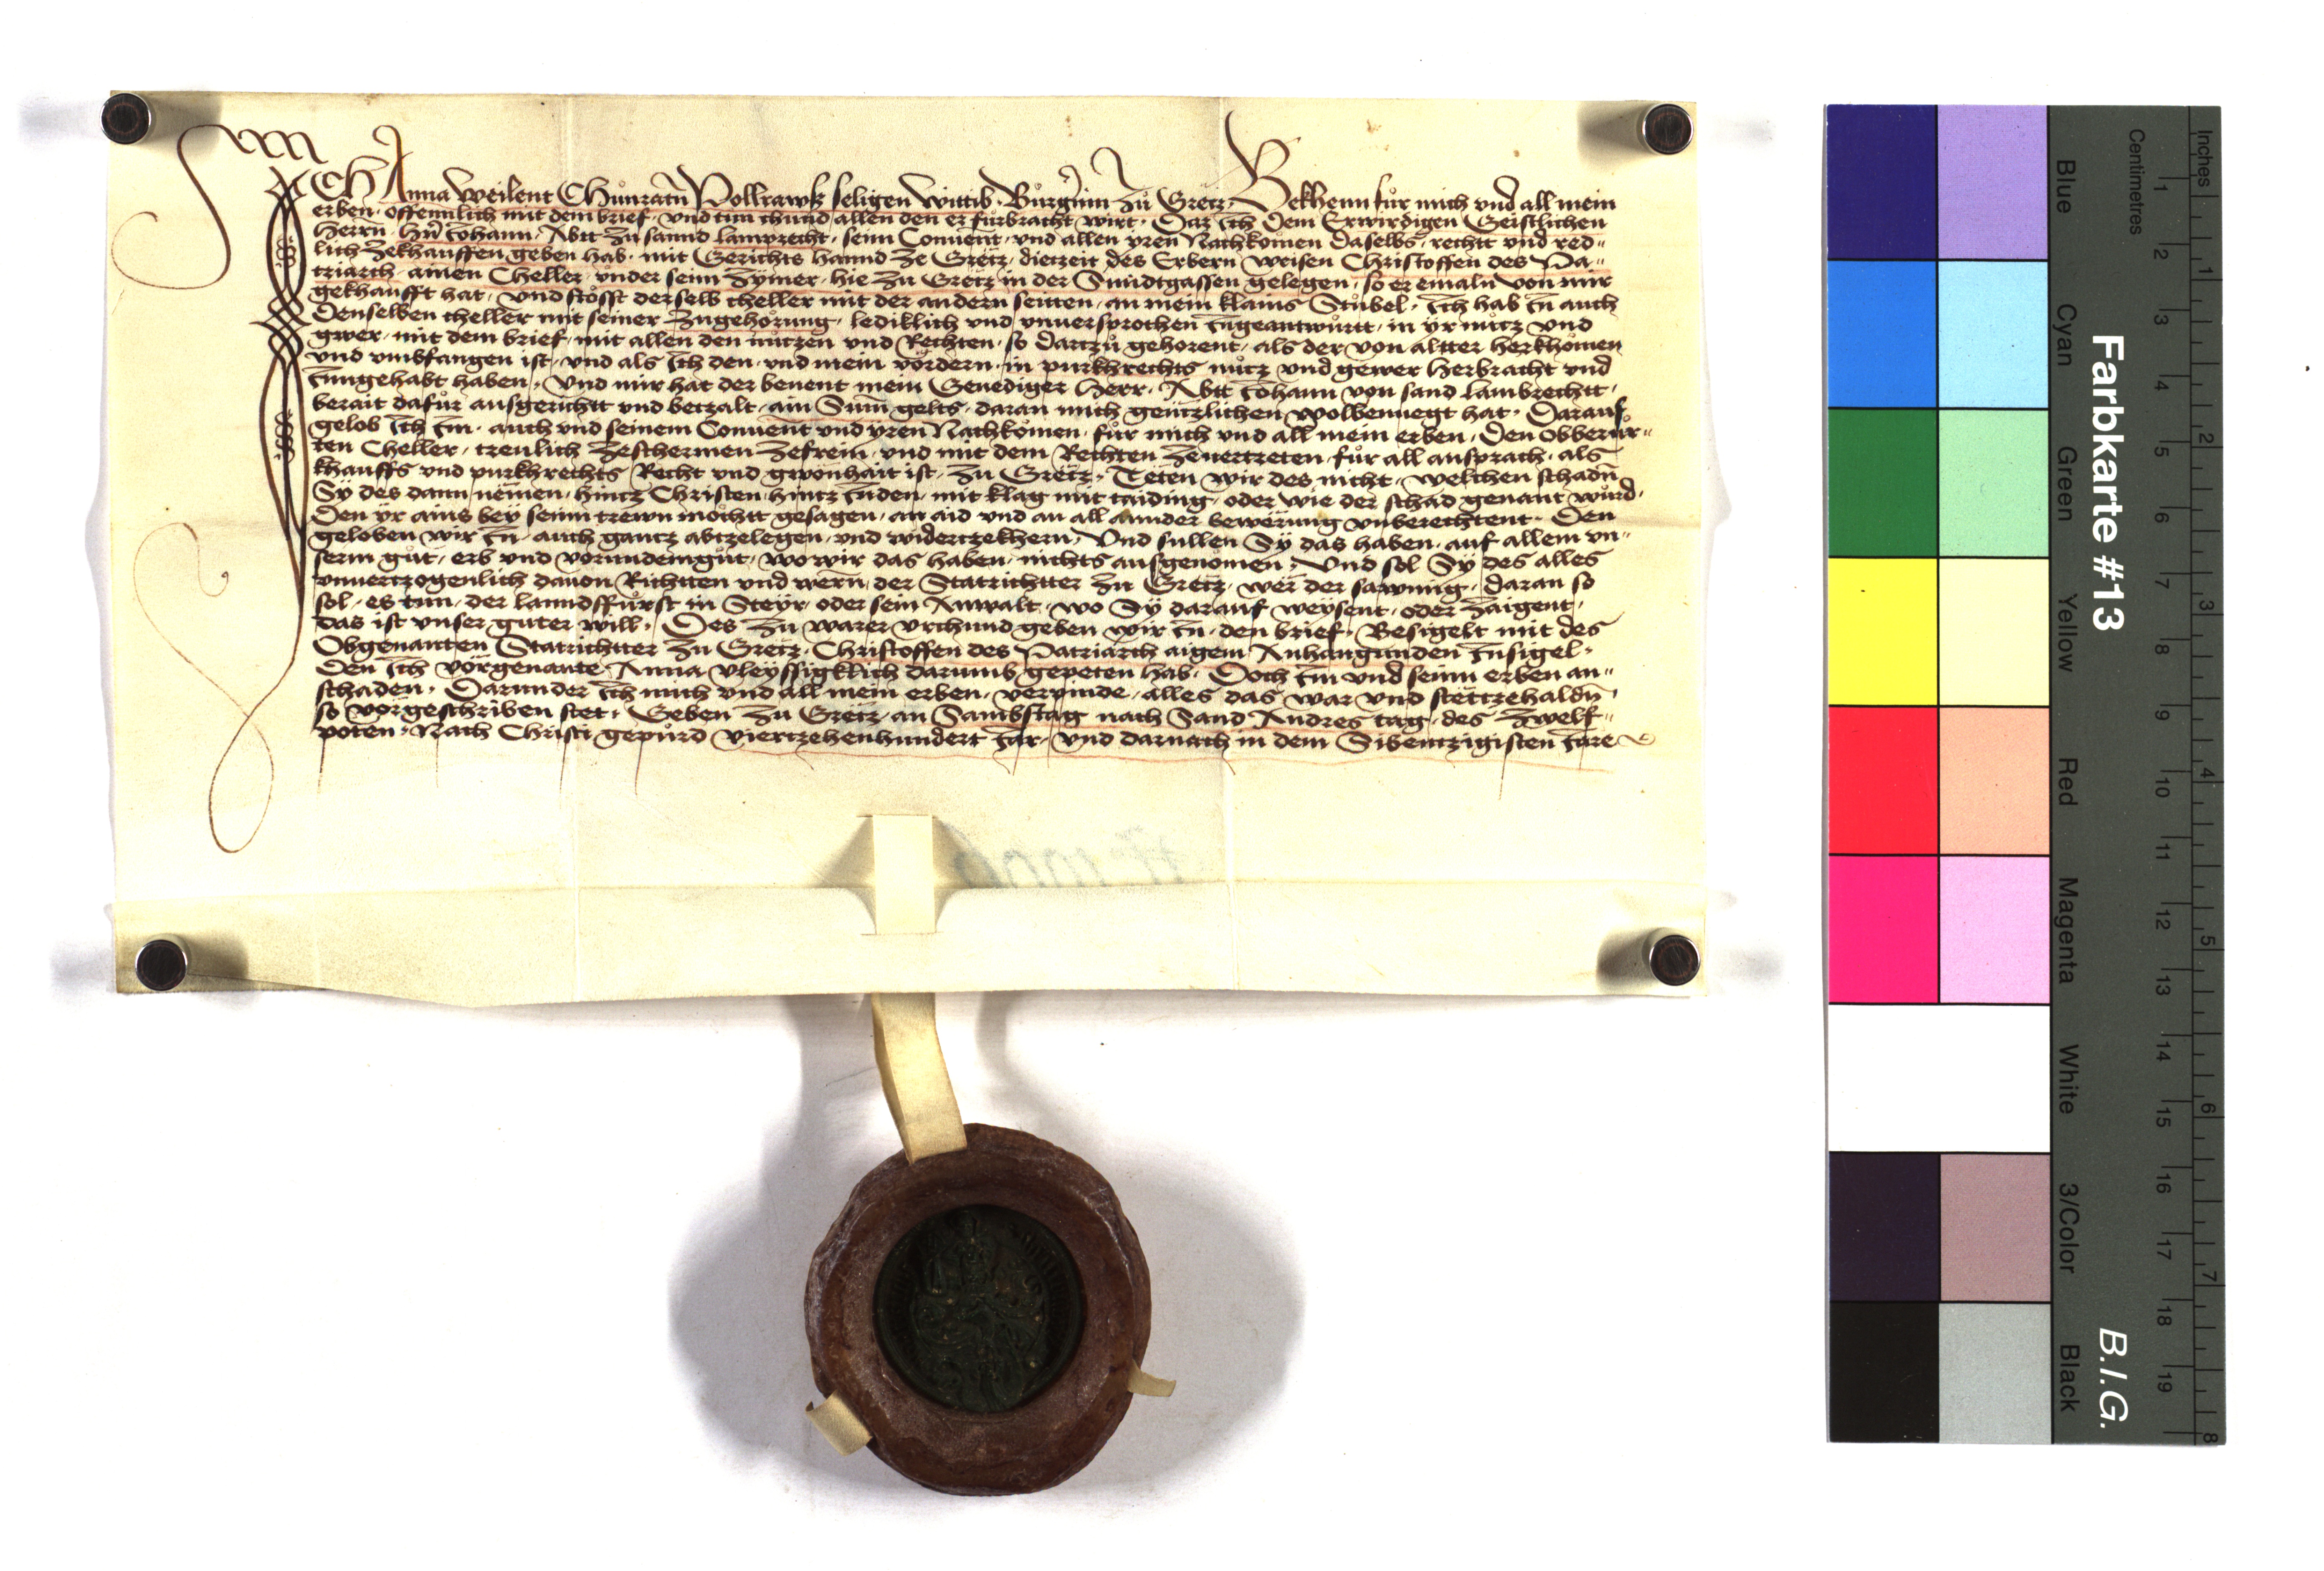 ICH Anna weilent Chůnratn̄ Pollrawß seligen wittib, Bůrgṙin zů Gretz, Bekhenn fůr mich vnd all mein
erben, offennlich mit dem brief, vnd tun chund allen den er fůrbracht wirt, Daz Ich dem Erwirdigen Geistlichen
herrn, hrn̄ Johann, Abtt zu sannd Lamprecht, seinn Conuent, vnd allen yren Nachkömen daselbs, rechtt vnd red-
lich zekhauffen geben hab, mit Gerichts hannd ze Gretz, dietzeit des Erbern weisen Christoffen des Pa-
triarch, ainen Cheller, vnder seim zymer, hie zu Gretz in der Smidtgassen gelegen, so er emaln von mir
gekhaufft hat, vnd stösst derselb cheller mit der andern seitten, an mein klains Stůbel, Ich hab In auch
Denselben cheller mit seiner zugehörung, lediklich vnd vnuersprochen Ingeantwůrtt, in yr nůtz vnd
gwer, mit dem brief, mit allen den nutzen vnd Rechten, so dartzů gehorent, als der von altter herkhömen
vnd vmbfangen ist, vnd als Ich den, vnd mein vördern, in purkhrechts nůtz vnd gewer herbracht vnd
Inngehabt haben, Vnd mir hat der benent mein Genediger herr, Abtt Johann von sand Lambrechtt,
berait dafůr ausgerichtt vnd betzalt, ain Sum̄ gelts, daran mich gentzlichen wolbenuegt hat, Darauf
gelob Ich Im, auch vnd seinem Conuent vnd yren Nachkömen, fůr mich vnd all mein erben, Den obberůr-
ten Cheller, treulich zeschermen zefrein, vnd mit dem Rechten zeuertreten, fůr all ansprach, als
khauffs vnd purkhrechts Recht vnd gwonhait ist, zu Gretz, Teten wir des nicht, welchen schadn̄
Sy des dann nemen, hintz Christen, hintz Inden, mit klag mit taiding, oder wie der schad genant wůrd,
Den yr ains bey seinn trewn möchtt gesagen, an aid vnd an all annder bewerung vnberechtent, Den
geloben wir In, auch gantz abtzelegen, vnd widertzekhern, Vnd sullen Sy das haben, auf allem vn-
serm gůt, erb vnd vorundemgůt, wo wir das haben, nichts ausgenomen, Vnd sol Sy des alles
vnuertzogenlich dauon Richtten vnd wern, der Statrichtter zu Gretz, wer der sawmig, daran so
sol, es tun, der lanndffůrst in Steyr, oder sein Anwalt, wo Sy darauf weysent, oder zaigent,
das ist vnser guter will, Des zu warer vrchund geben wir In, den brief, Besigelt mit des
Obgenanten Statrichtter zu Gretz, Christoffen des Patriarch aigem Anhangunden Insigel,
Den Ich vorgenante, Anna vleyssigklich darumb gepeten hab, Doch Im vnd seinn erben an-
schaden, Darunder Ich mich vnd all mein erben, verpinde, alles das war vnd stettzehaldn̄,
so vorgeschriben stet, Geben zu Gretz, an Sambstag nach Sand Andres tag, des zwelf-
poten, Nach Christi gepůrd viertzehenhundert Jar, vnd darnach in dem Sibentzigisten Jare
Farbkarte #13
B.I.G.
Blue
Cyan
Green
Yellow
Red
Magenta
White
3/Color
Black
Centimetres
1 2 3 4 5 6 7 8 9 10 11 12 13 14 15 16 17 18 19
Inches
1 2 3 4 5 6 7 8